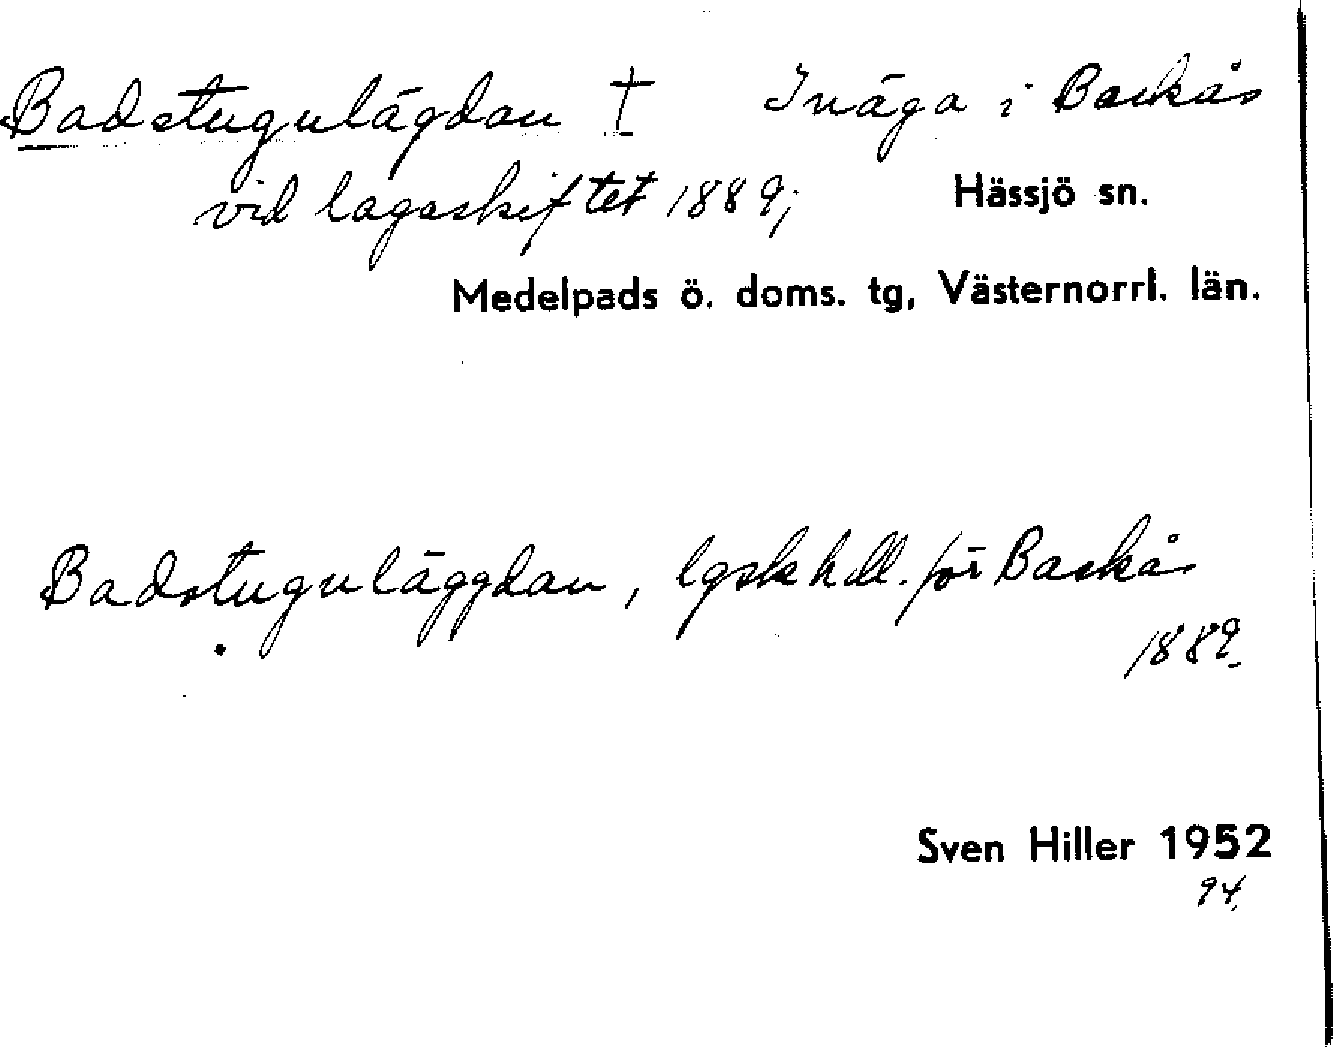 Badstugulägdan † Inäga i Backås
vid lagaskiftet 1889; Hässjö sn.
Medelpads ö. doms. tg, Västernorrl. län.
Badstuguläggdan, lgskhdl. för Backås
1889.
Sven Hiller 1952
94.